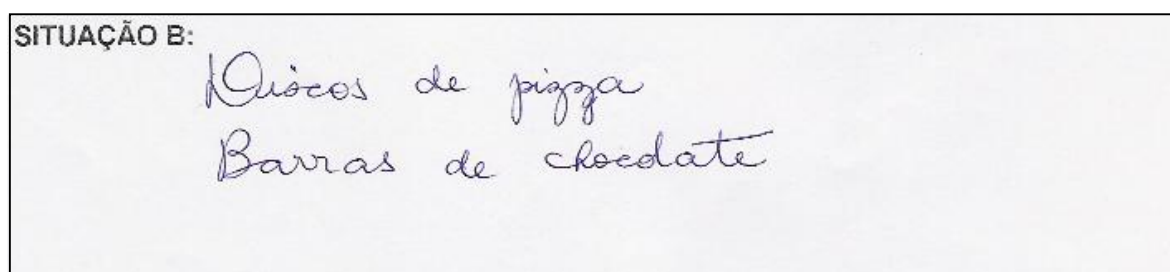 SITUAÇÃO B:
Discos de pizza
Barras de chocolate